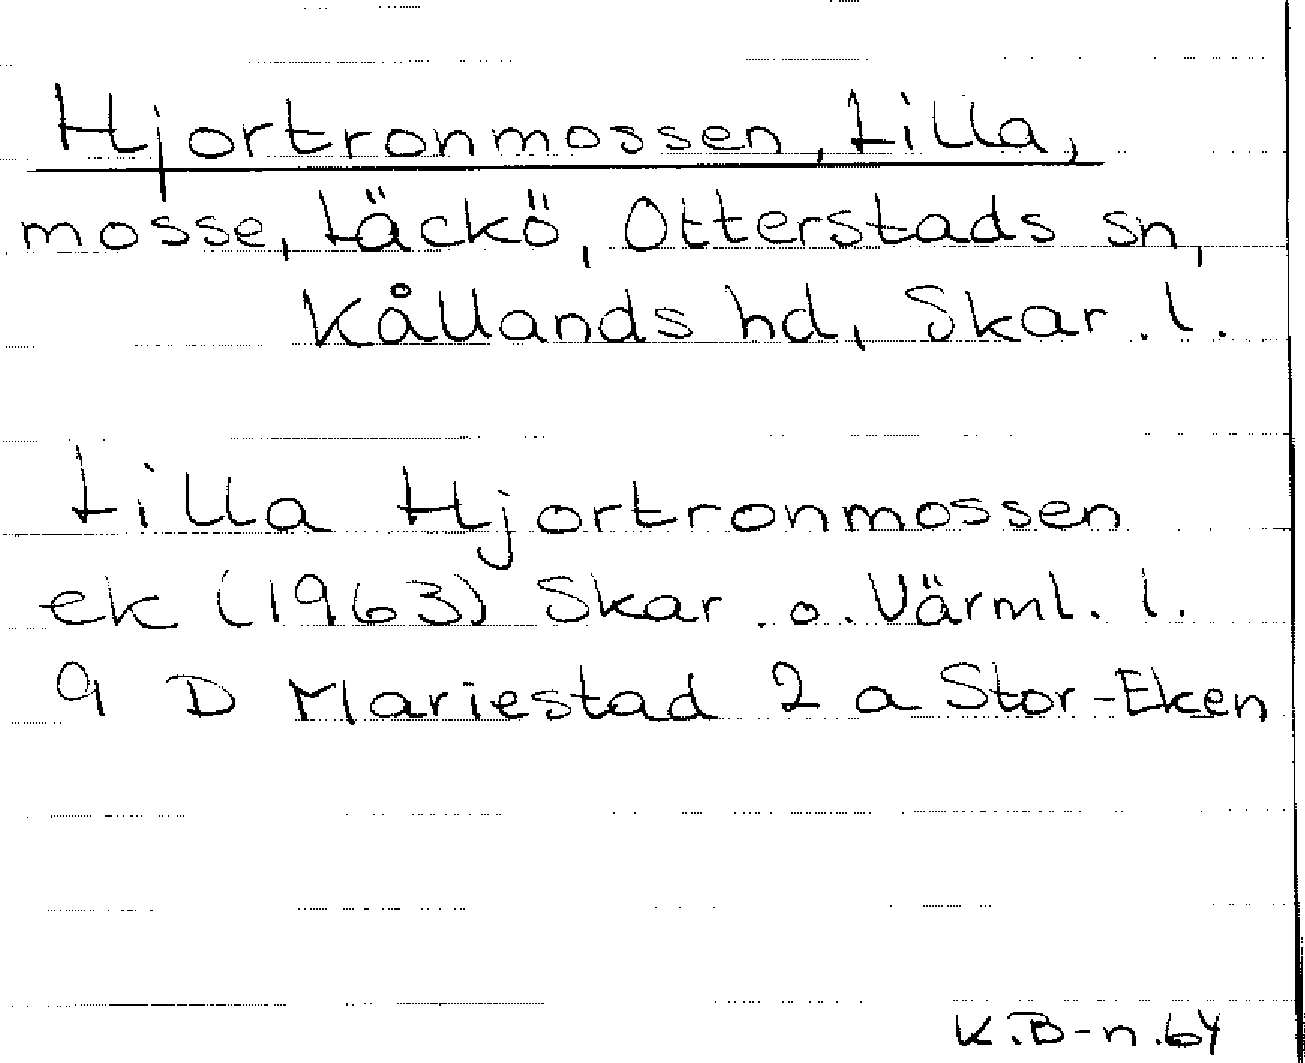 Hjortronmossen, Lilla,
mosse, Läckö, Otterstads sn,
Kållands hd, Skar. l.
Lilla Hjortronmossen
ek (1963) Skar. o. Värml. l.
9 D Mariestad 2 a Stor-Eken
K.B-n. 64